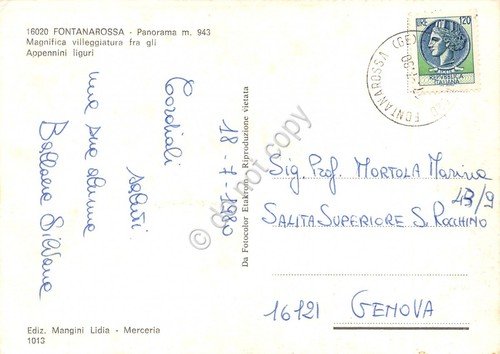 16020 FONTANAROSSA - Panorama m. 943
Magnifica villeggiatura fra gli
Appennini liguri
Cordiali
saluti
una sua alunna
Ballaera Silvana
18-7-1980
Da Fotocolor Etakrom - Riproduzione vietata
LIRE 120
REPUBBLICA
ITALIANA
FONTANAROSSA (GE)
Sig. Prof. MORTOLA Marina
SALITA SUPERIORE S. ROCCHINO
43/9
16121 GENOVA
Ediz. Mangini Lidia - Merceria
1013
do not copy